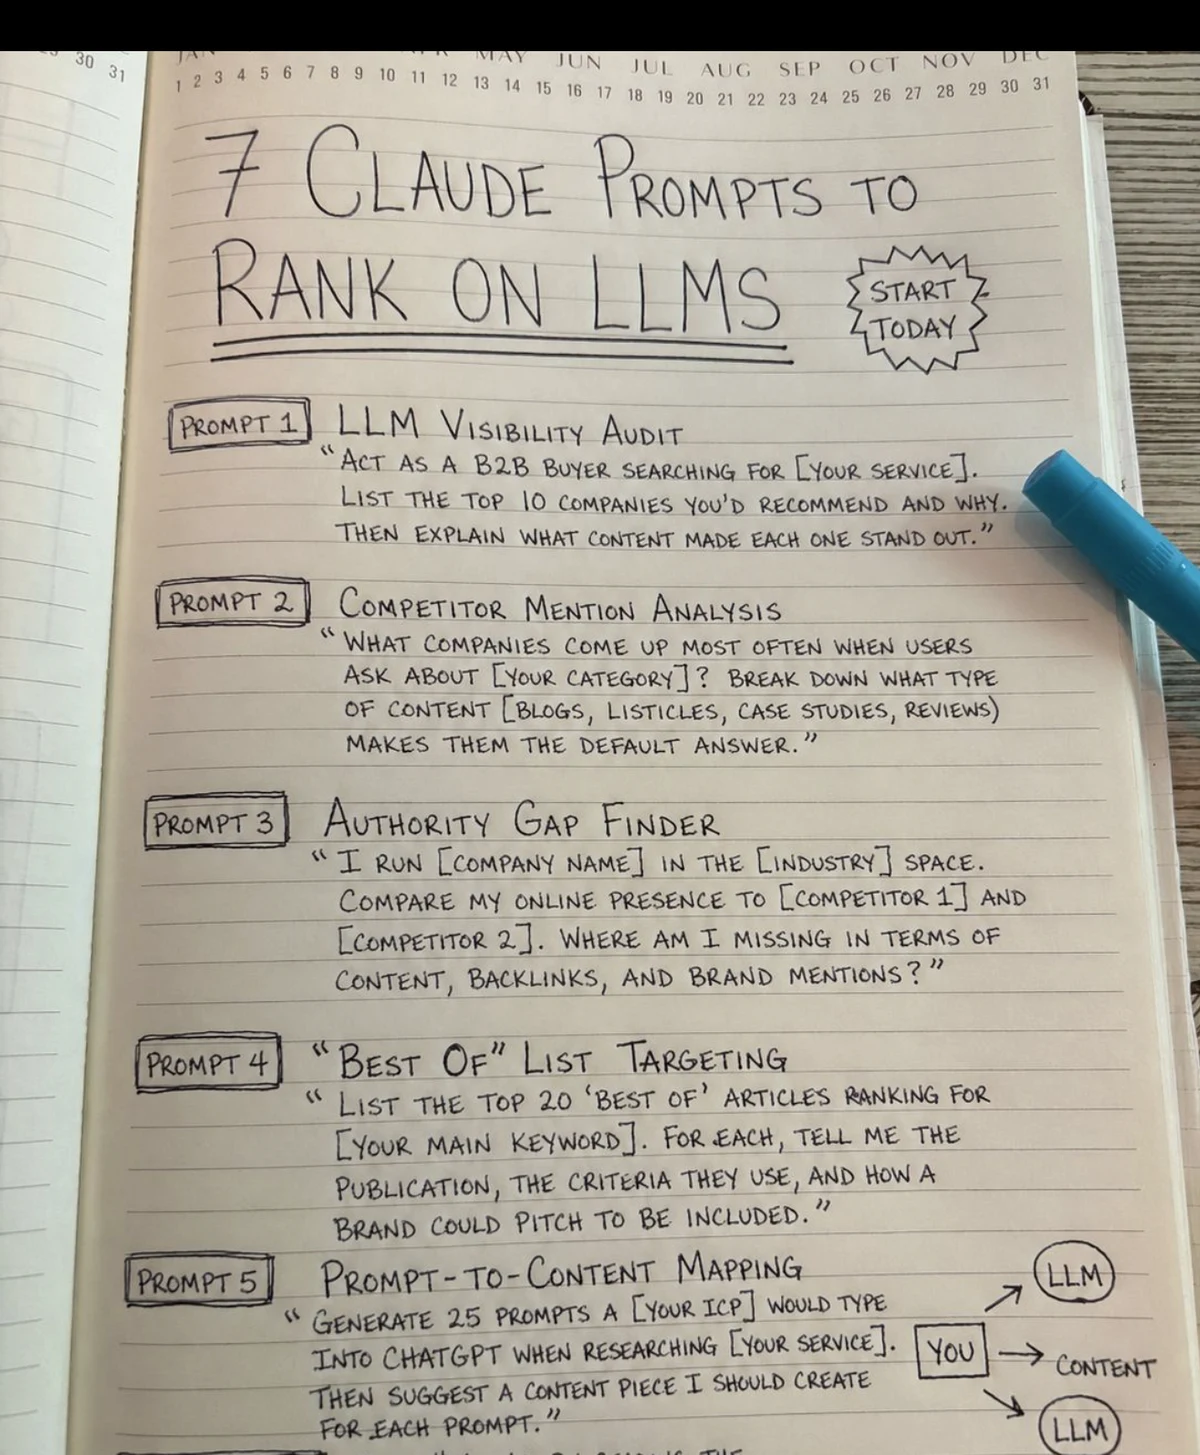 30
31
MAY JUN JUL AUG SEP OCT NOV DEC
1 2 3 4 5 6 7 8 9 10 11 12 13 14 15 16 17 18 19 20 21 22 23 24 25 26 27 28 29 30 31
7 CLAUDE PROMPTS TO
RANK ON LLMS
START
TODAY
PROMPT 1 LLM VISIBILITY AUDIT
"ACT AS A B2B BUYER SEARCHING FOR [YOUR SERVICE].
LIST THE TOP 10 COMPANIES YOU'D RECOMMEND AND WHY.
THEN EXPLAIN WHAT CONTENT MADE EACH ONE STAND OUT."
PROMPT 2 COMPETITOR MENTION ANALYSIS
"WHAT COMPANIES COME UP MOST OFTEN WHEN USERS
ASK ABOUT [YOUR CATEGORY]? BREAK DOWN WHAT TYPE
OF CONTENT [BLOGS, LISTICLES, CASE STUDIES, REVIEWS)
MAKES THEM THE DEFAULT ANSWER."
PROMPT 3 AUTHORITY GAP FINDER
"I RUN [COMPANY NAME] IN THE [INDUSTRY] SPACE.
COMPARE MY ONLINE PRESENCE TO [COMPETITOR 1] AND
[COMPETITOR 2]. WHERE AM I MISSING IN TERMS OF
CONTENT, BACKLINKS, AND BRAND MENTIONS?"
PROMPT 4 "BEST OF" LIST TARGETING
"LIST THE TOP 20 'BEST OF' ARTICLES RANKING FOR
[YOUR MAIN KEYWORD]. FOR EACH, TELL ME THE
PUBLICATION, THE CRITERIA THEY USE, AND HOW A
BRAND COULD PITCH TO BE INCLUDED."
PROMPT 5 PROMPT-TO-CONTENT MAPPING
"GENERATE 25 PROMPTS A [YOUR ICP] WOULD TYPE
INTO CHATGPT WHEN RESEARCHING [YOUR SERVICE].
THEN SUGGEST A CONTENT PIECE I SHOULD CREATE
FOR EACH PROMPT."
LLM
YOU → CONTENT
LLM